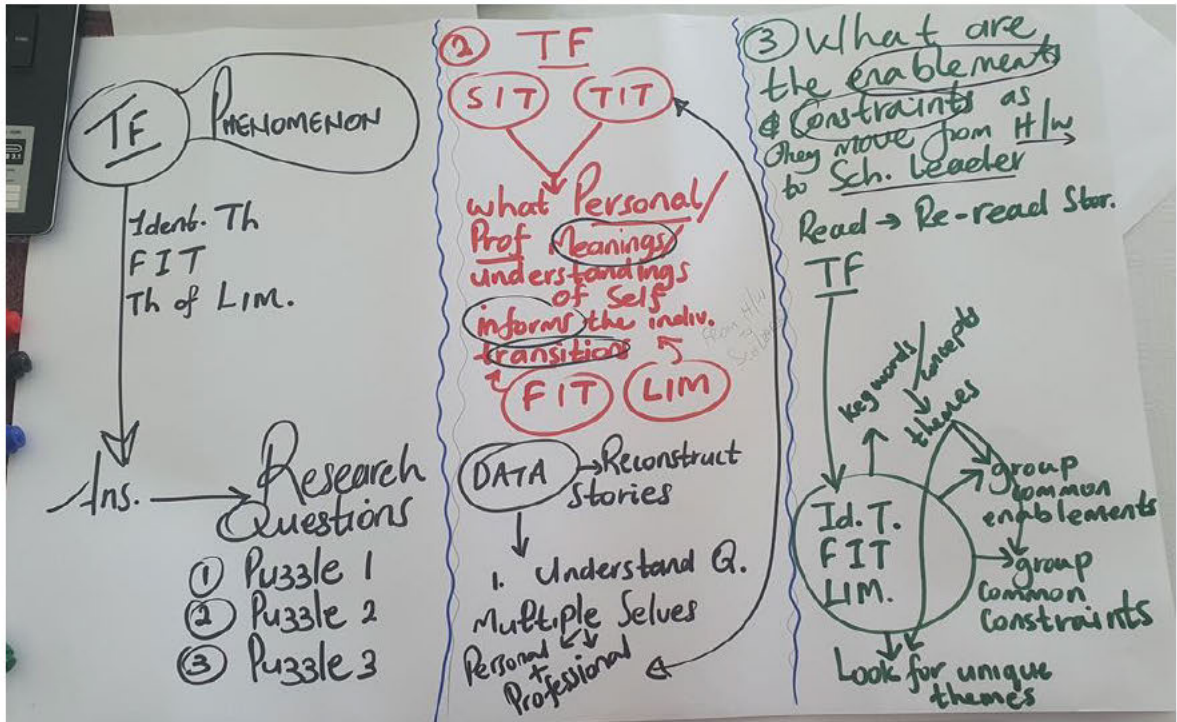 TF
PHENOMENON
Ident. Th
FIT
Th of LIM.
Ans.
Research
Questions
① Puzzle 1
② Puzzle 2
③ Puzzle 3
② TF
SIT TIT
what Personal/
Prof Meanings/
understandings
of Self
informs the indiv.
transitions
from H/W
to
FIT LIM
DATA → Reconstruct
Stories
1. Understand Q.
Multiple Selves
Personal
+
Professional
③ What are
the enablements
& Constraints as
they move from H/W
to Sch. Leader
Read → Re-read Stor.
TF
key words/
concepts
themes
Id. T.
FIT
LIM.
group
common
enablements
group
common
constraints
Look for unique
themes